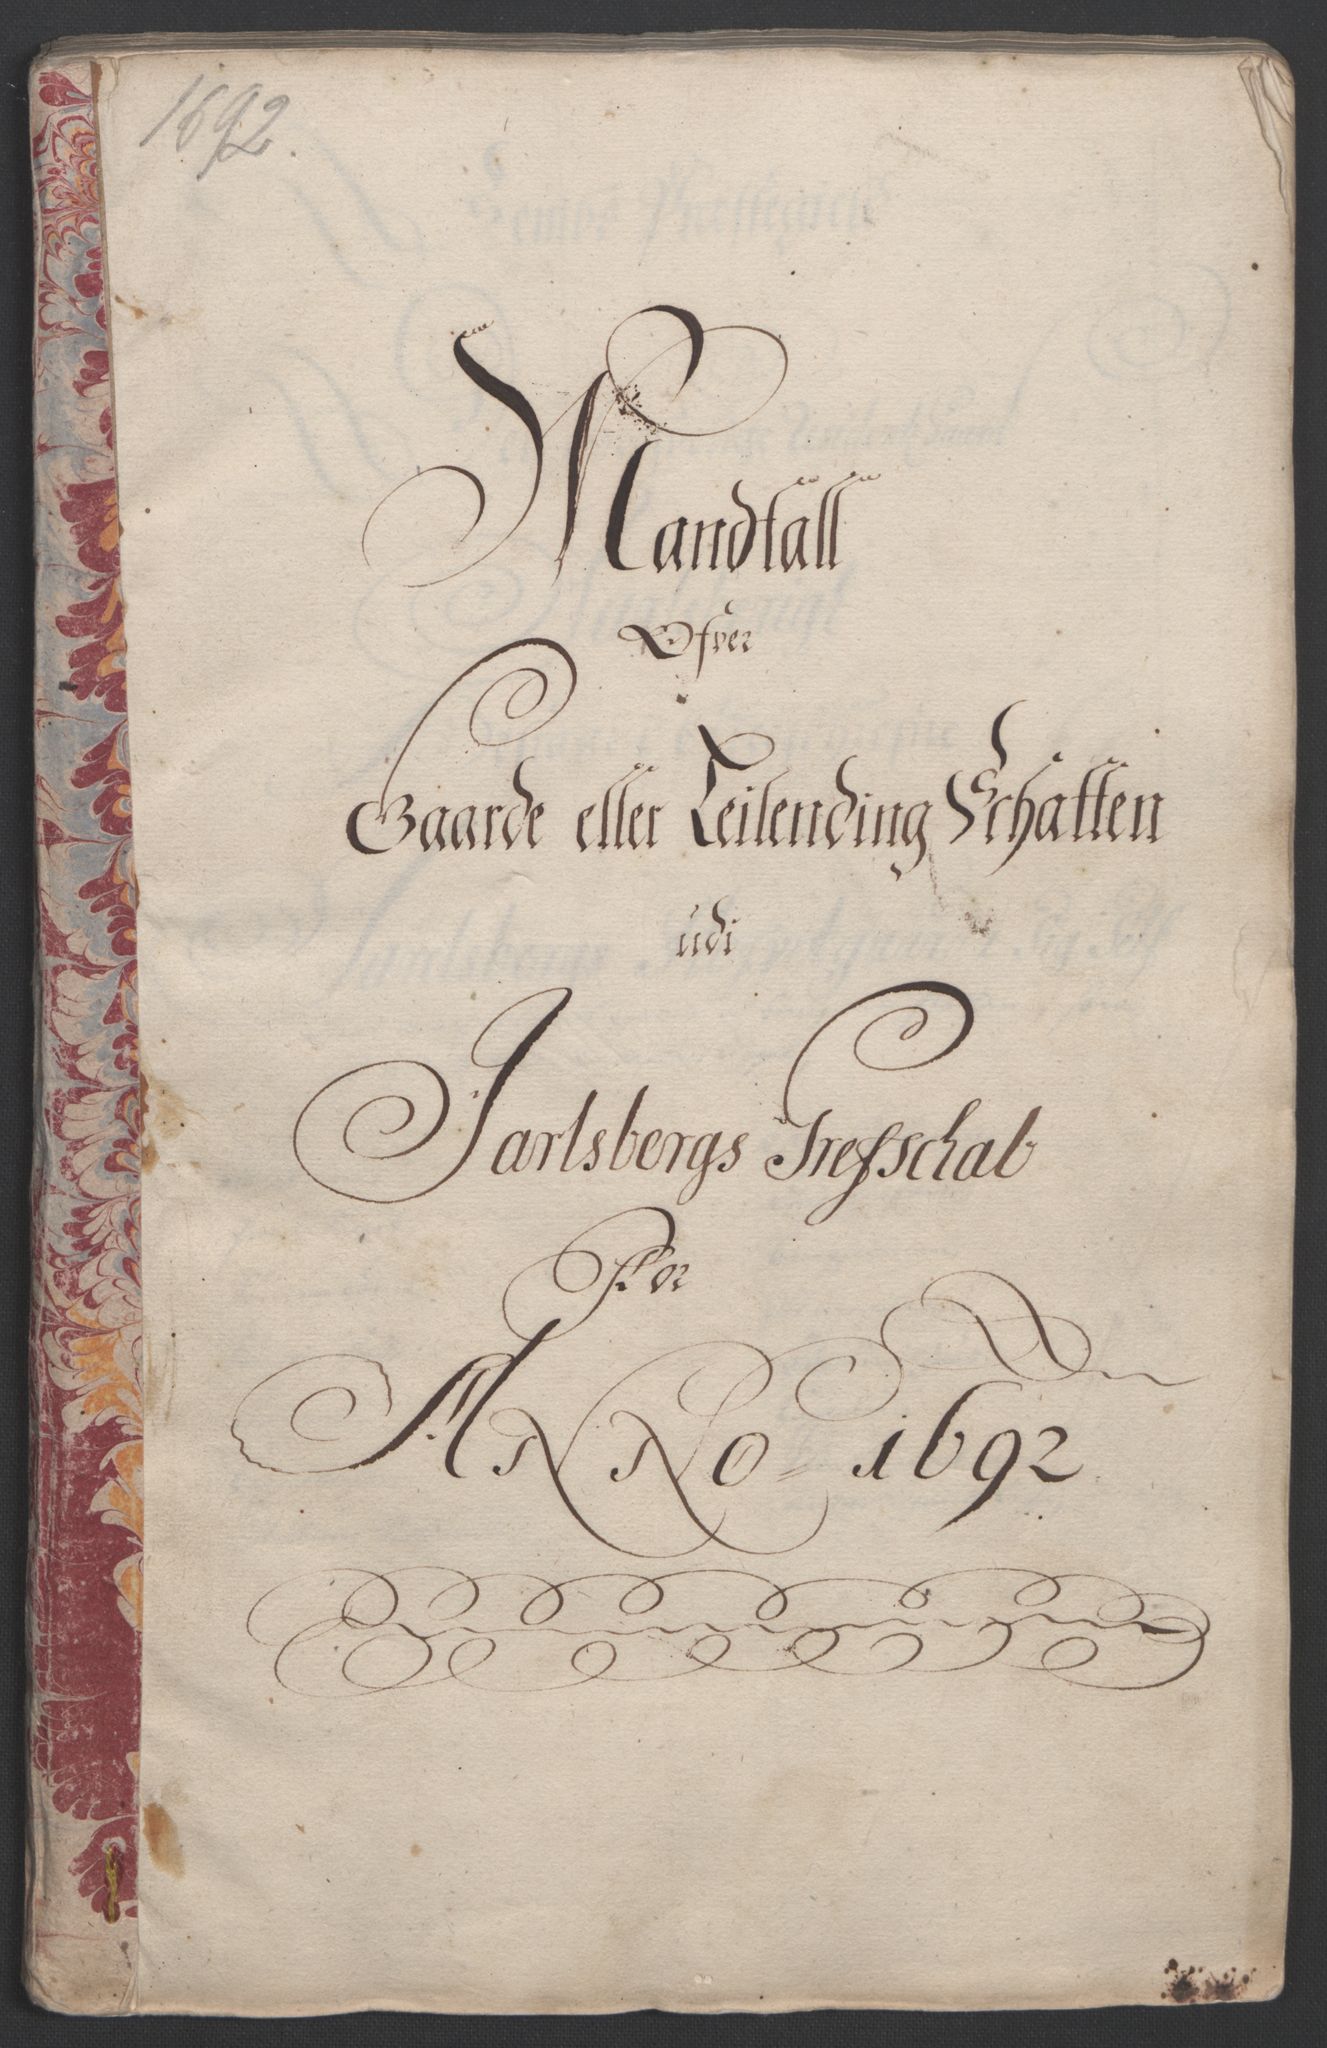 1692.
Mandtall
Ofver
Gaarde eller Leilending Schatten
udi
Jarlsbergs Grefschab
For
ANNO = 1692